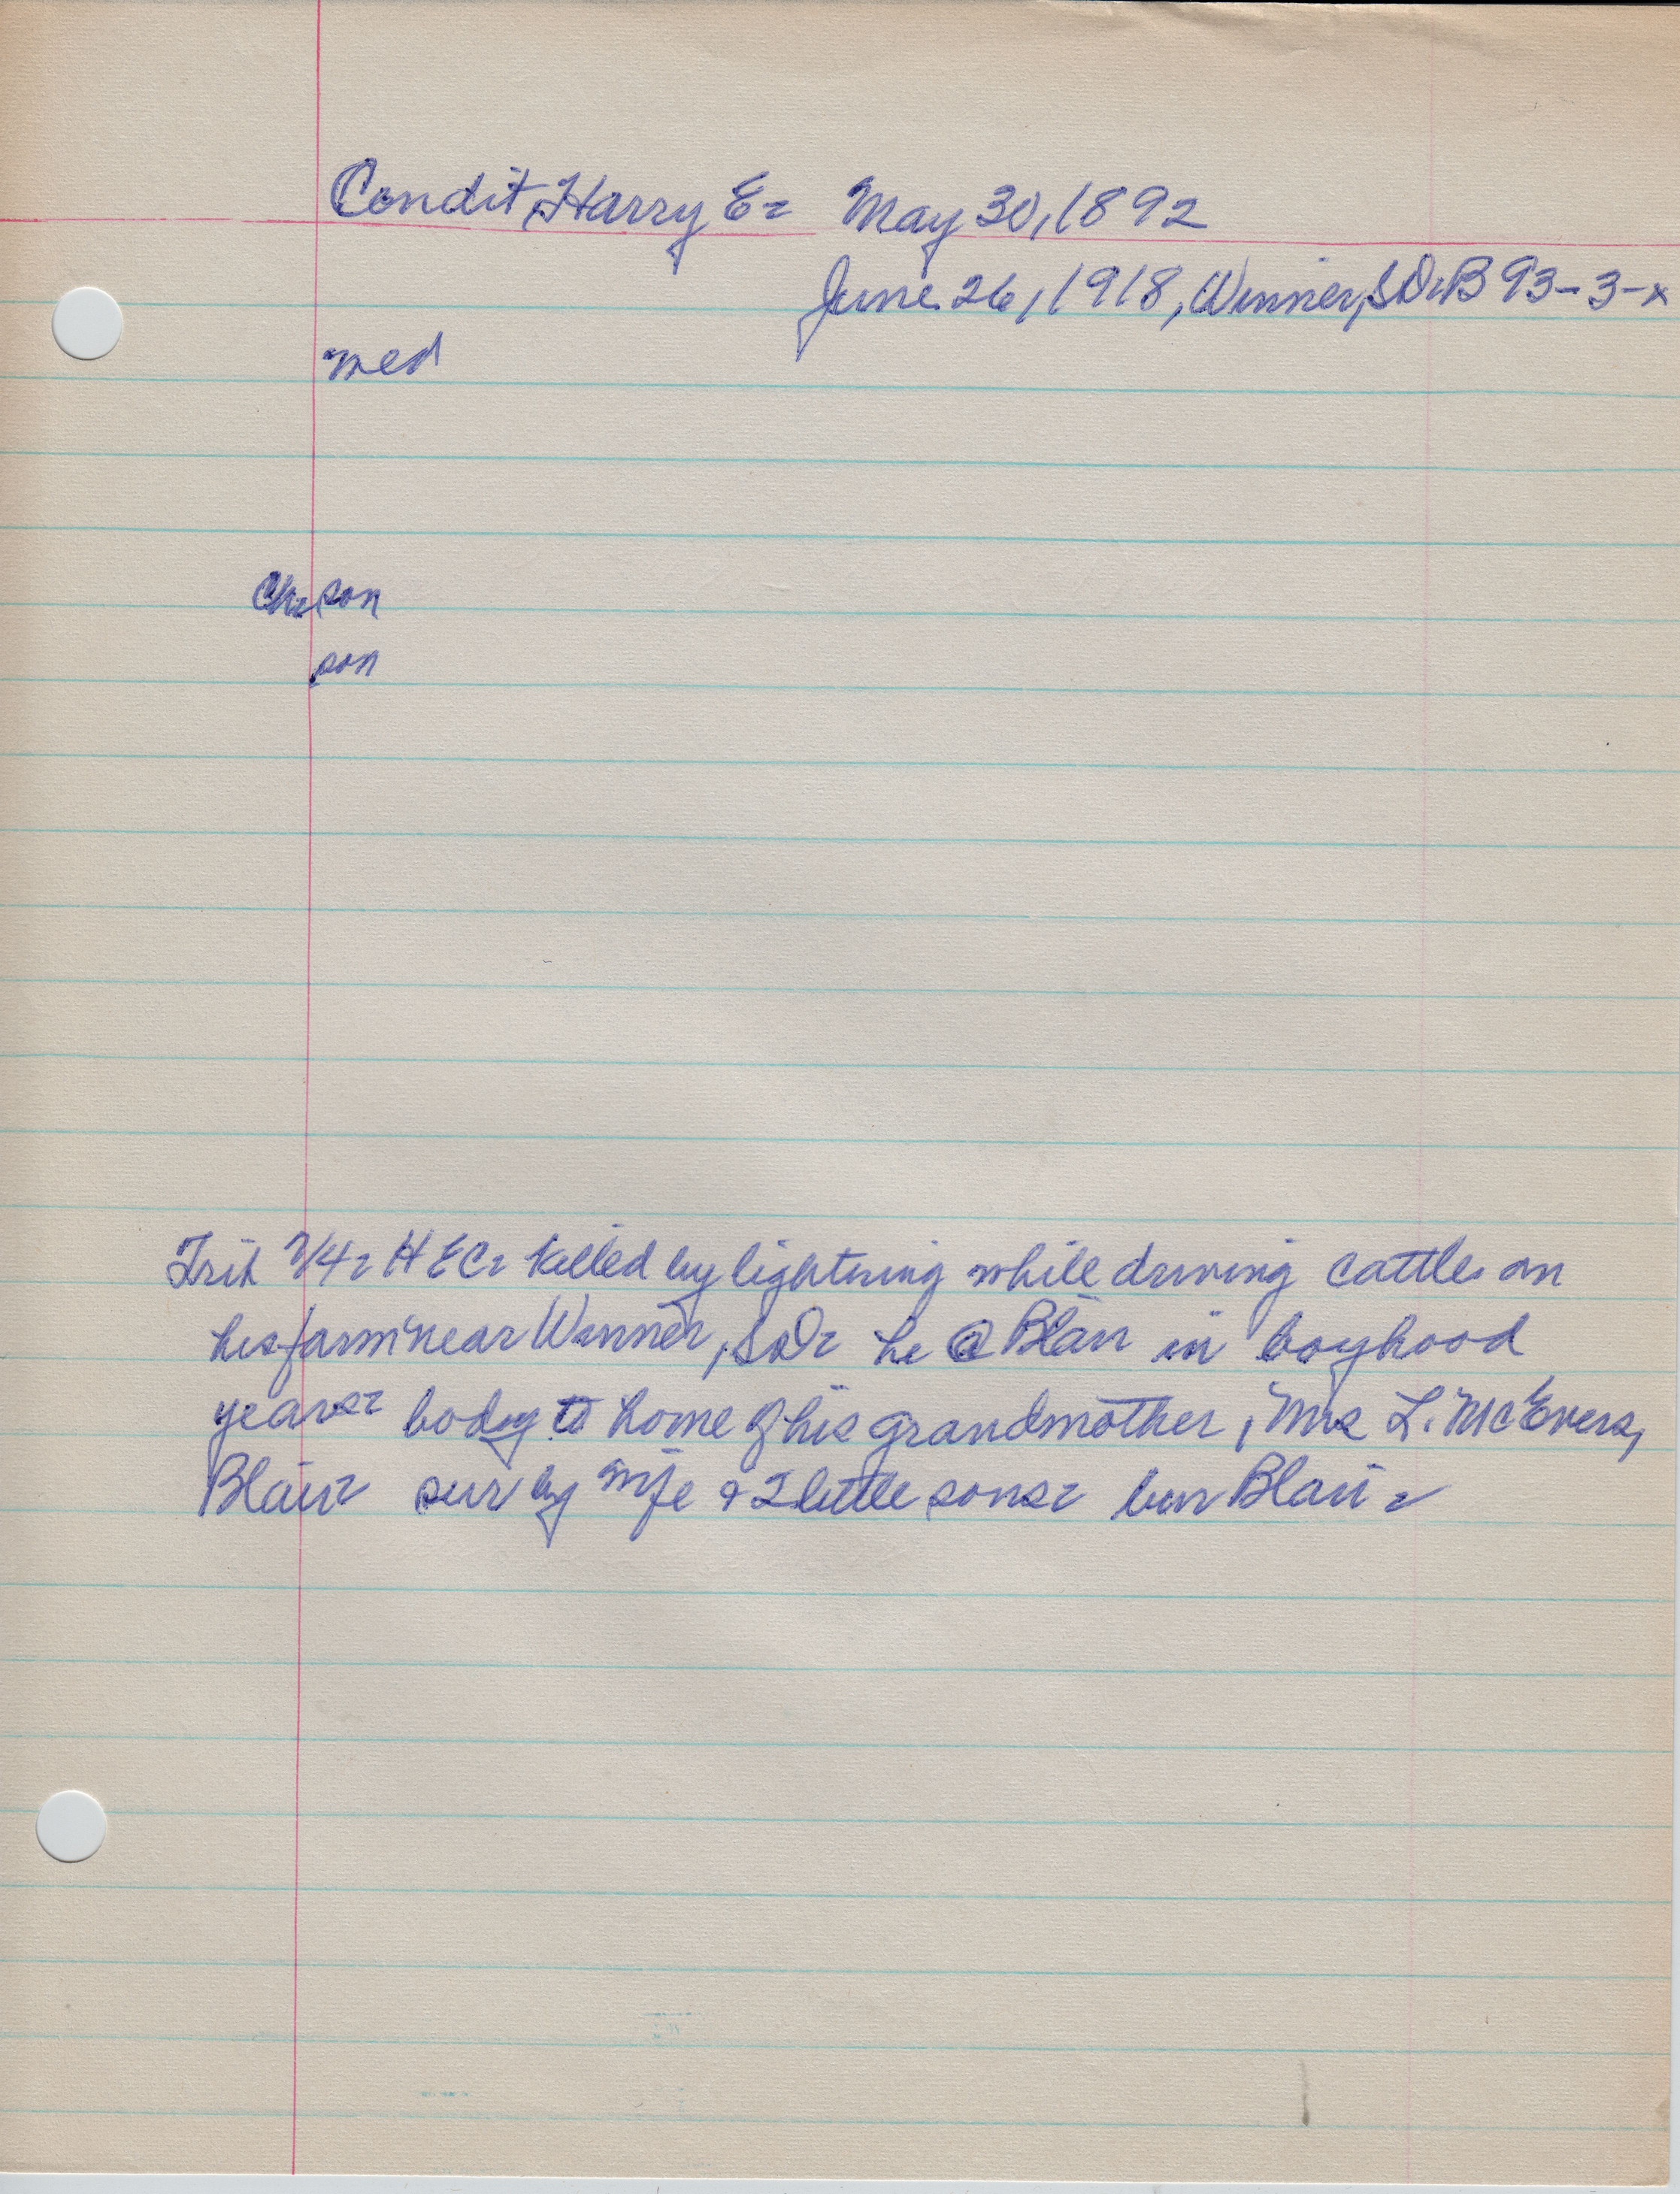 Condit, Harry E= May 30, 1892
June 26, 1918, Winner, SD= B 93-3-x
med
Ch= son
son
Trib 7/4= H E C= killed by lightning while driving cattle on
his farm near Winner, SD= he @ Blair in boyhood
years= body to home of his grandmother, Mrs L. McEvers,
Blair= sur by wife & 2 little sons= bur Blair=